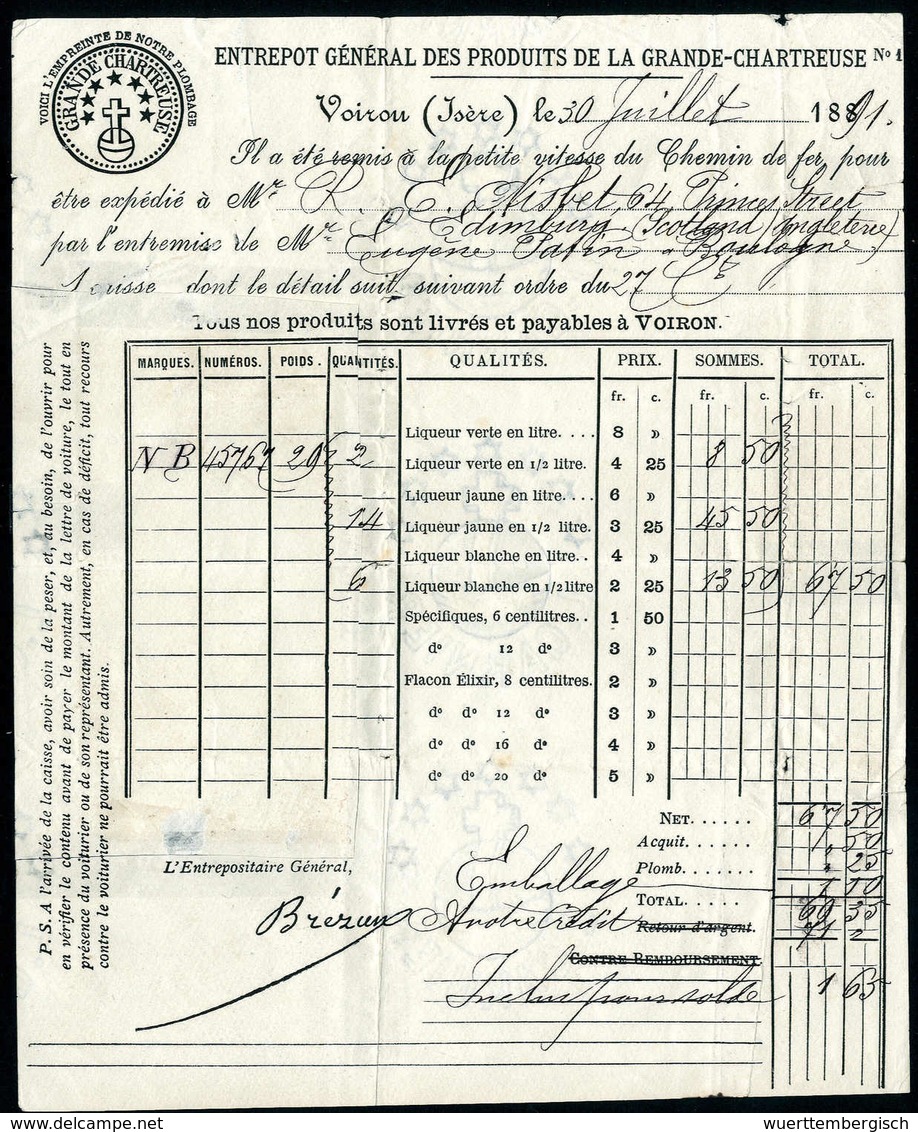 VOICI L'EMPREINTE DE NOTRE PLOMBAGE
GRANDE CHARTREUSE
ENTREPOT GÉNÉRAL DES PRODUITS DE LA GRANDE-CHARTREUSE No 1
Voiron (Isère) le 30 Juillet 1891.
Il a été remis à la petite vitesse du Chemin de fer, pour
être expédié à Mr R. E. Nisbet, 64, Princes Street
Edimburg, Scotland (Ingleterre)
par l'entremise de Mr Eugène Patin à Boulogne
1 caisse dont le détail suit, suivant ordre du 27 Ct
Tous nos produits sont livrés et payables à VOIRON.
MARQUES. NUMÉROS. POIDS. QUANTITÉS. QUALITÉS. PRIX. SOMMES. TOTAL.
fr. c. fr. c. fr. c.
Liqueur verte en litre.... 8 »
N B 45767 26 2 Liqueur verte en 1/2 litre. 4 25 8 50
Liqueur jaune en litre... 6 »
14 Liqueur jaune en 1/2 litre. 3 25 45 50
Liqueur blanche en litre.. 4 »
6 Liqueur blanche en 1/2 litre 2 25 13 50 67 50
Spécifiques, 6 centilitres.. 1 50
do 12 do 3 »
Flacon Élixir, 8 centilitres. 2 »
do do 12 do 3 »
do do 16 do 4 »
do do 20 do 5 »
NET...... 67 50
Acquit...... " 50
Plomb...... " 25
Emballage 1 10
TOTAL..... 69 35
A votre Crédit Retour d'argent. 71 "
CONTRE REMBOURSEMENT
Inclus pour solde 1 65
L'Entrepositaire Général,
Brézun
P. S. A l'arrivée de la caisse, avoir soin de la peser, et, au besoin, de l'ouvrir pour
en vérifier le contenu avant de payer le montant de la lettre de voiture, le tout en
présence du voiturier ou de son représentant. Autrement, en cas de déficit, tout recours
contre le voiturier ne pourrait être admis.
wuerttembergisch